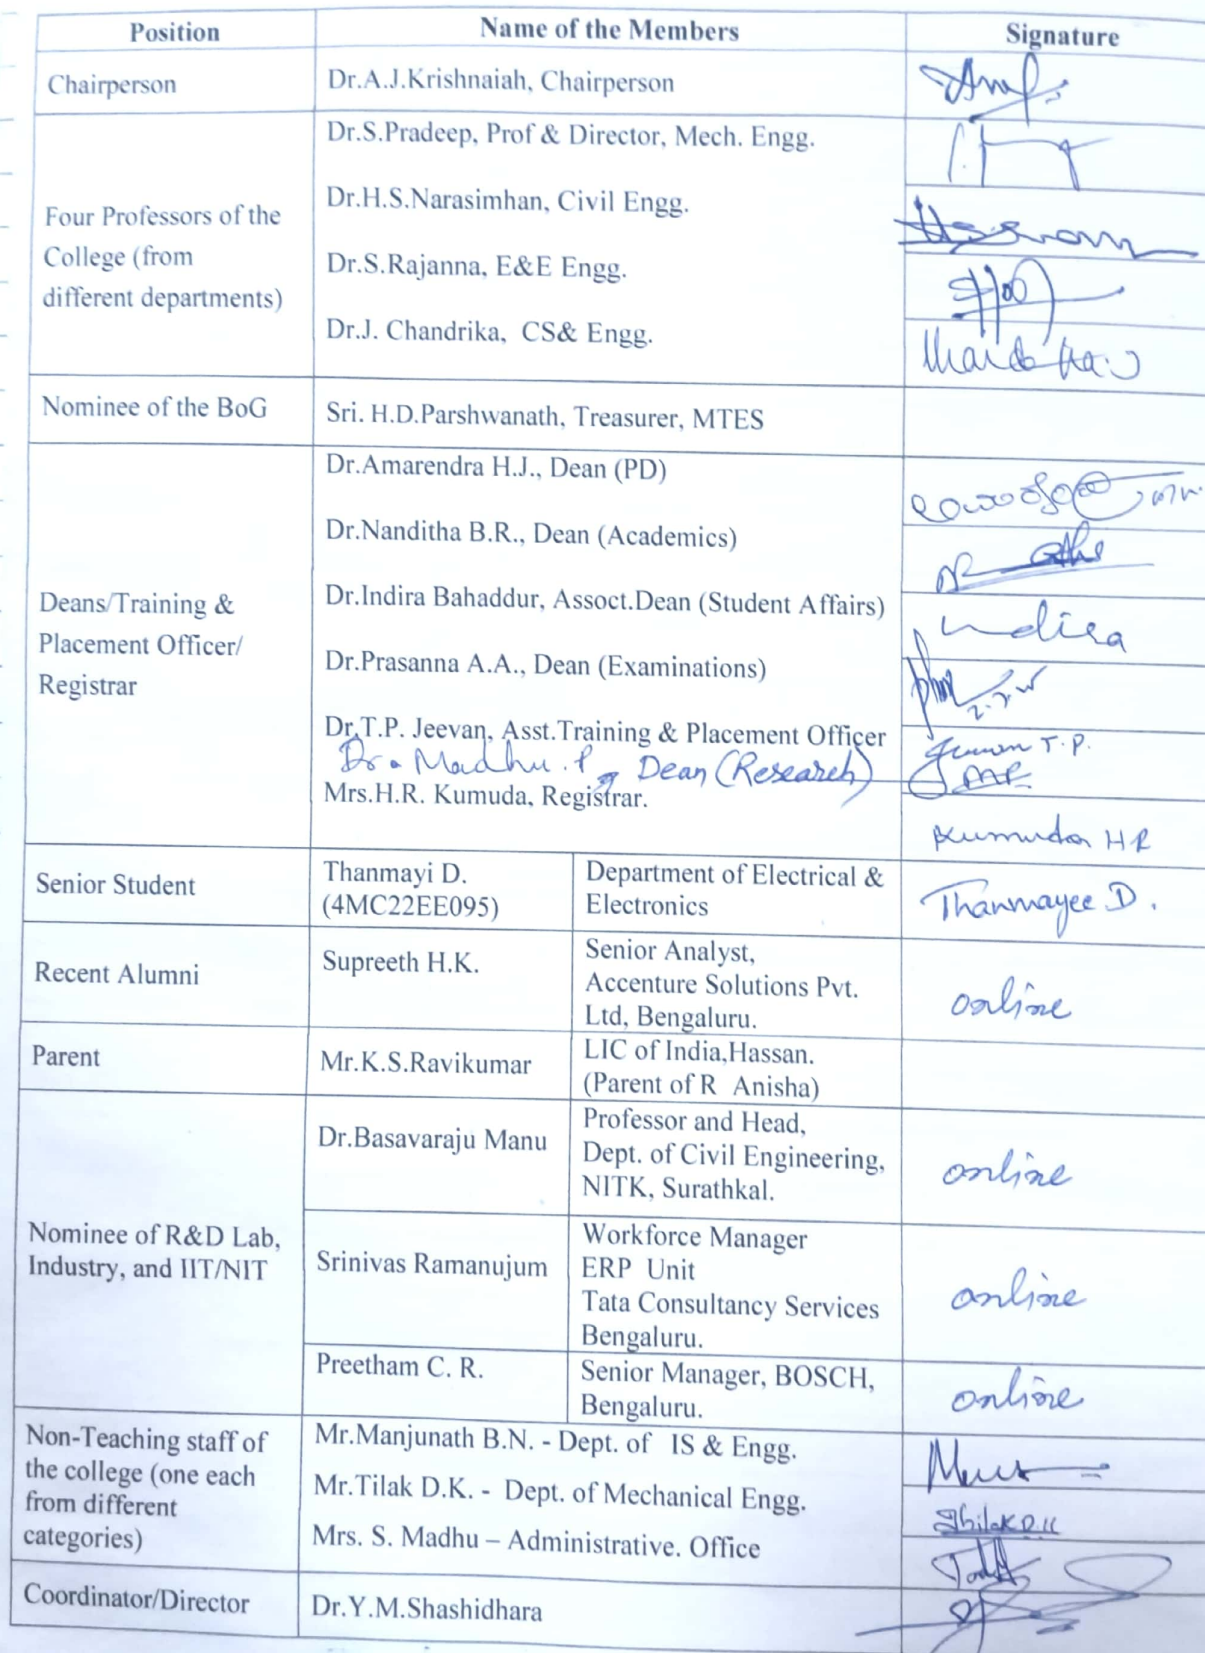 Position Name of the Members Signature
Chairperson Dr.A.J.Krishnaiah, Chairperson
Four Professors of the
College (from
different departments)
Dr.S.Pradeep, Prof & Director, Mech. Engg.
Dr.H.S.Narasimhan, Civil Engg.
Dr.S.Rajanna, E&E Engg.
Dr.J. Chandrika, CS& Engg.
Nominee of the BoG Sri. H.D.Parshwanath, Treasurer, MTES
Deans/Training &
Placement Officer/
Registrar
Dr.Amarendra H.J., Dean (PD)
Dr.Nanditha B.R., Dean (Academics)
Dr.Indira Bahaddur, Assoct.Dean (Student Affairs)
Indira
Dr.Prasanna A.A., Dean (Examinations)
Dr.T.P. Jeevan, Asst.Training & Placement Officer
T.P.
Dr. Madhu.P, Dean (Research)
Mrs.H.R. Kumuda, Registrar.
Kumuda HR
Senior Student
Thanmayi D.
(4MC22EE095)
Department of Electrical &
Electronics
Thanmayee D.
Recent Alumni
Supreeth H.K.
Senior Analyst,
Accenture Solutions Pvt.
Ltd, Bengaluru.
online
Parent
Mr.K.S.Ravikumar
LIC of India,Hassan.
(Parent of R Anisha)
Nominee of R&D Lab,
Industry, and IIT/NIT
Dr.Basavaraju Manu
Professor and Head,
Dept. of Civil Engineering,
NITK, Surathkal.
online
Srinivas Ramanujum
Workforce Manager
ERP Unit
Tata Consultancy Services
Bengaluru.
online
Preetham C. R.
Senior Manager, BOSCH,
Bengaluru.
online
Non-Teaching staff of
the college (one each
from different
categories)
Mr.Manjunath B.N. - Dept. of IS & Engg.
Mr.Tilak D.K. - Dept. of Mechanical Engg.
Mrs. S. Madhu – Administrative. Office
Coordinator/Director Dr.Y.M.Shashidhara